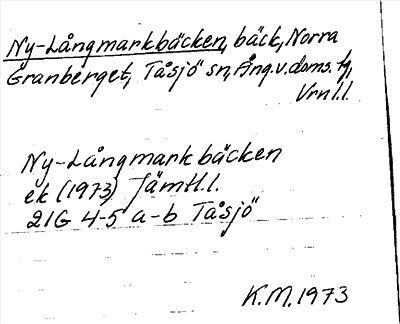 Ny-Långmarkbäcken, bäck, Norra
Granberget, Tåsjö sn, Ång.v.doms. fg,
Vrnl.l.
Ny-Långmarkbäcken
ek (1973) Jämtl.l.
21G 4-5 a-b Tåsjö
K.M. 1973